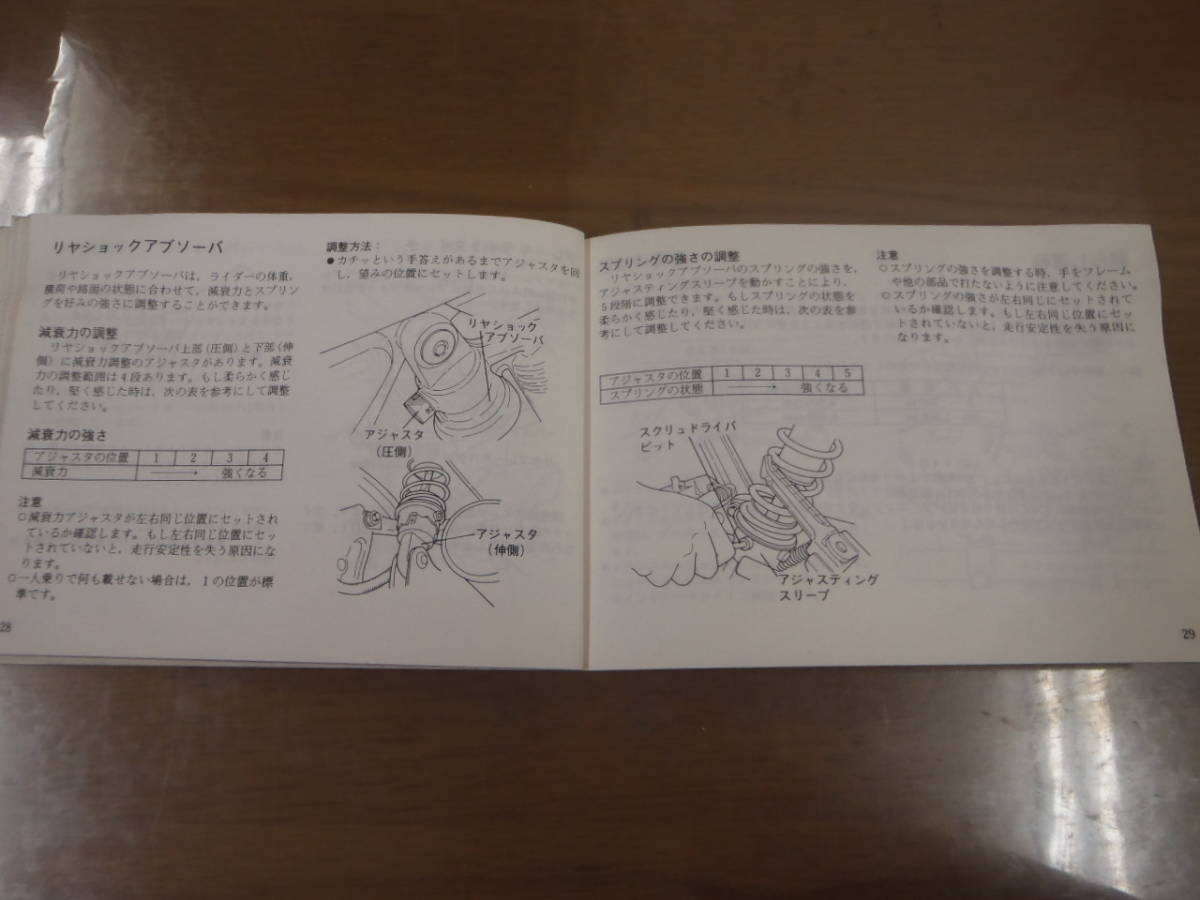 リヤショックアブソーバ
リヤショックアブソーバは、ライダーの体重、
積荷や路面の状態に合わせて、減衰力とスプリン
グを好みの強さに調整することができます。
減衰力の調整
リヤショックアブソーバ上部(圧側)と下部(伸
側)に減衰力調整のアジャスタがあります。減衰
力の調整範囲は4段あります。もし柔らかく感じ
たり、堅く感じた時は、次の表を参考にして調整
してください。
減衰力の強さ
アジャスタの位置 1 2 3 4
減衰力 → 強くなる
注意
○減衰力アジャスタが左右同じ位置にセットされ
ているか確認します。もし左右同じ位置にセッ
トされていないと、走行安定性を失う原因にな
ります。
○一人乗りで何も載せない場合は、1の位置が標
準です。
28
調整方法:
●カチッという手答えがあるまでアジャスタを回
し、望みの位置にセットします。
リヤショック
アブソーバ
アジャスタ
(圧側)
アジャスタ
(伸側)
スプリングの強さの調整
リヤショックアブソーバのスプリングの強さを、
アジャスティングスリーブを動かすことにより、
5段階に調整できます。もしスプリングの状態を
柔らかく感じたり、堅く感じた時は、次の表を参
考にして調整してください。
アジャスタの位置 1 2 3 4 5
スプリングの状態 → 強くなる
スクリュドライバ
ビット
アジャスティング
スリーブ
注意
○スプリングの強さを調整する時、手をフレーム
や他の部品で打たないように注意してください。
○スプリングの強さが左右同じにセットされて
いるか確認します。もし左右同じ位置にセッ
トされていないと、走行安定性を失う原因に
なります。
29